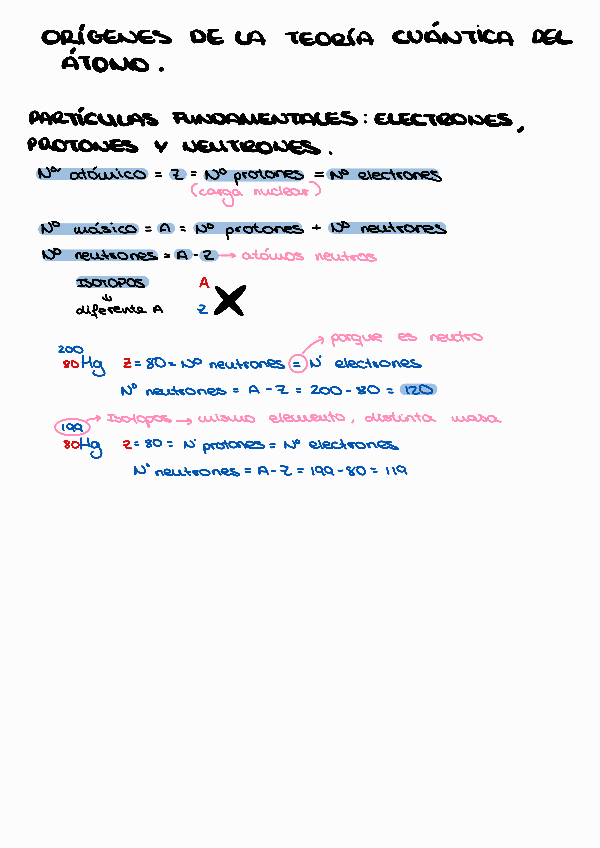 ORÍGENES DE LA TEORÍA CUÁNTICA DEL
ÁTOMO.
PARTÍCULAS FUNDAMENTALES: ELECTRONES,
PROTONES Y NEUTRONES.
Nº atómico = Z = Nº protones = Nº electrones
(carga nuclear)
Nº másico = A = Nº protones + Nº neutrones
Nº neutrones = A - Z → atómos neutros
ISOTOPOS A
↓
diferente A Z X
→ porque es neutro
200
80Hg Z = 80 = Nº neutrones = Nº electrones
Nº neutrones = A - Z = 200 - 80 = 120
199 → Isotopos → mismo elemento, distinta masa
80Hg Z = 80 = Nº protones = Nº electrones
Nº neutrones = A - Z = 199 - 80 = 119